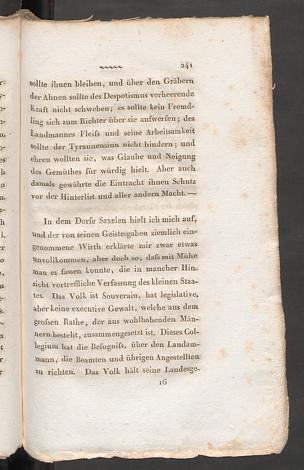 241
sollte ihnen bleiben, und über den Gräbern
der Ahnen sollte des Despotismus verheerende
Kraft nicht schweben; es sollte kein Fremd-
ling sich zum Richter über sie aufwerfen; des
Landmannes Fleiß und seine Arbeitsamkeit
sollte der Tyrannensinn nicht hindern; und
ehren wollten sie, was Glaube und Neigung
des Gemüthes für würdig hielt. Aber auch
damals gewährte die Eintracht ihnen Schutz
vor der Hinterlist und aller andern Macht.—
In dem Dorfe Saxelen hielt ich mich auf,
und der von seinen Geistesgaben ziemlich ein-
genommene Wirth erklärte mir zwar etwas
unvollkommen, aber doch so, daß mit Mühe
man es fassen konnte, die in mancher Hin-
sicht vortreffliche Verfassung des kleinen Staa-
tes. Das Volk ist Souverain, hat legislative,
aber keine executive Gewalt, welche aus dem
grossen Rathe, der aus wohlhabenden Män-
nern besteht, zusammengesetzt ist. Dieses Col-
legium hat die Befugniß, über den Landam-
mann, die Beamten und übrigen Angestellten
zu richten. Das Volk hält seine Landesge-
16